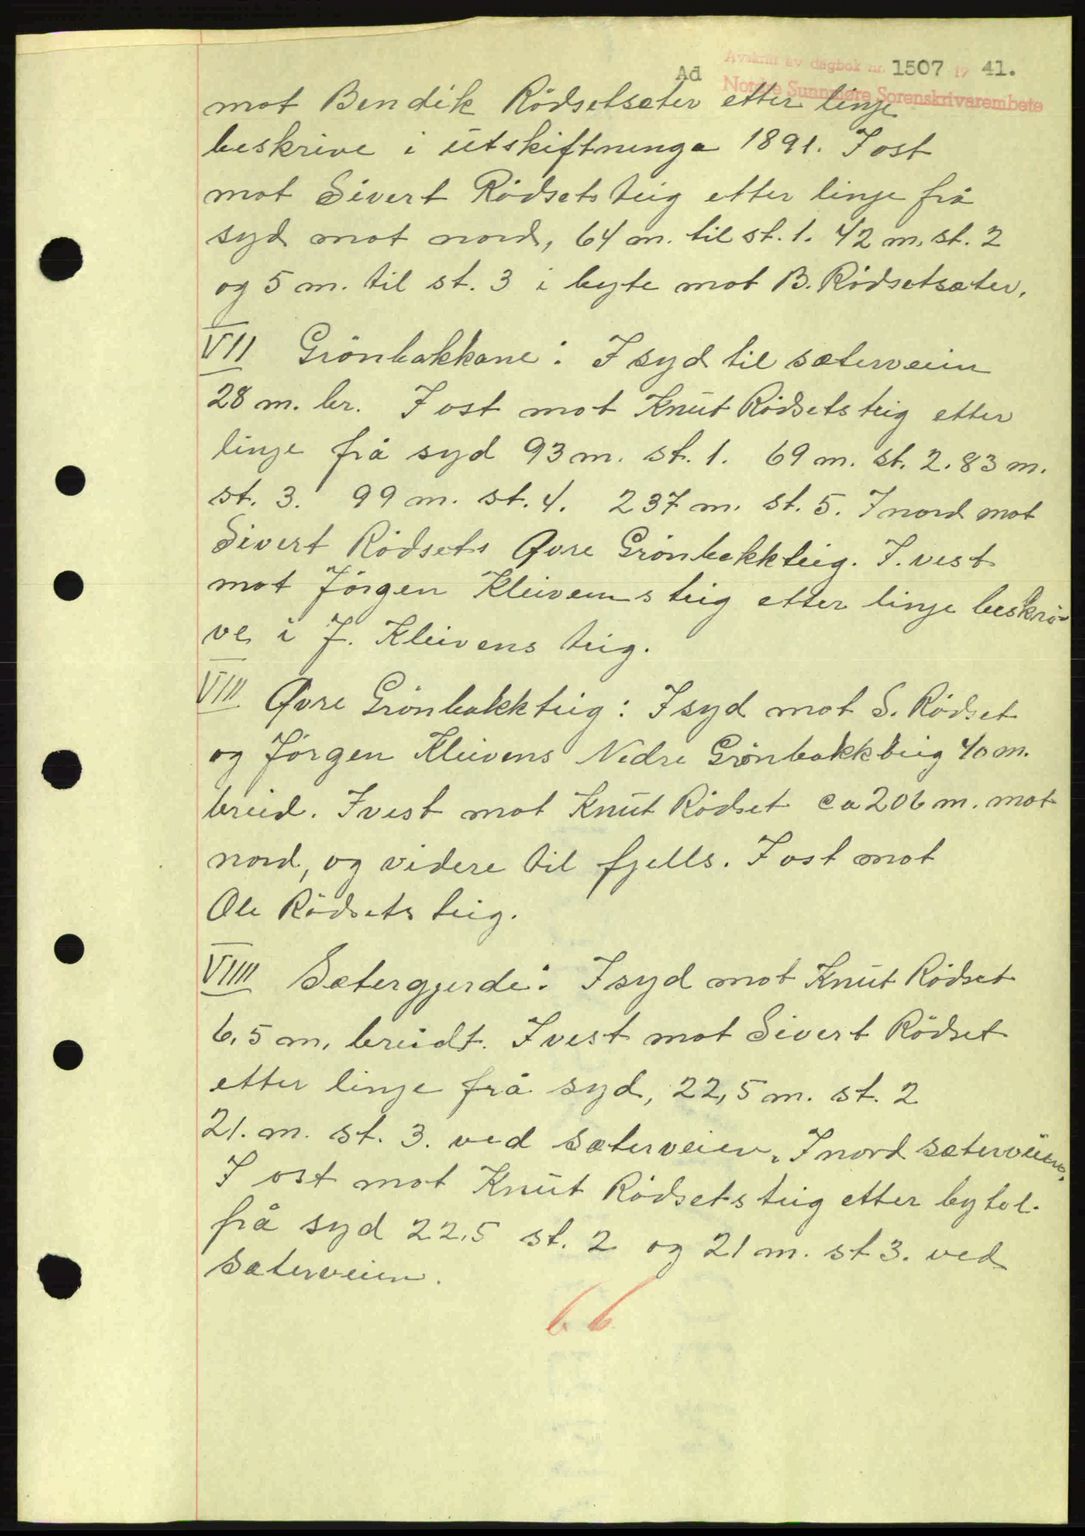 Avskrift av dagbok nr. 1507 19 41.
Ad Nordre Sunnmøre Sorenskrivarembete
mot Bendik Rödsetsæter etter linje
beskrive i utskiftninga 1891. I ost
mot Sivert Rödsets teig etter linje frå
syd mot nord, 64 m. til st. 1. 42 m. st. 2
og 5 m. til st. 3 i byte mot B. Rödsetsæter.
VII Grönbakkane: I syd til sæterveien
28 m. br. I ost mot Knut Rödsets teig etter
linje frå syd 93 m. st. 1. 69 m. st. 2. 83 m.
st. 3. 99 m. st. 4. 237 m. st. 5. I nord mot
Sivert Rödsets Øvre Grönbakkteig. I. vest
mot Jörgen Kleivens teig etter linje beskrö-
ve i J. Kleivens teig.
VIII Øvre Grönbakkteig: I syd mot S. Rödset
og Jörgen Kleivens Nedre Grönbakkteig 40 m.
breid. I vest mot Knut Rödset ca 206 m. mot
nord, og videre til fjells. I ost mot
Ole Rödsets teig.
VIIII Sætergjerde: I syd mot Knut Rödset
6,5 m. breidt. I vest mot Sivert Rödset
etter linje frå syd, 22,5 m. st. 2
21. m. st. 3. ved sæterveien. I nord sæterveien.
I ost mot Knut Rödsets teig etter bytel.
frå syd 22,5 st. 2 og 21 m. st 3. ved
Sæterveien.
66